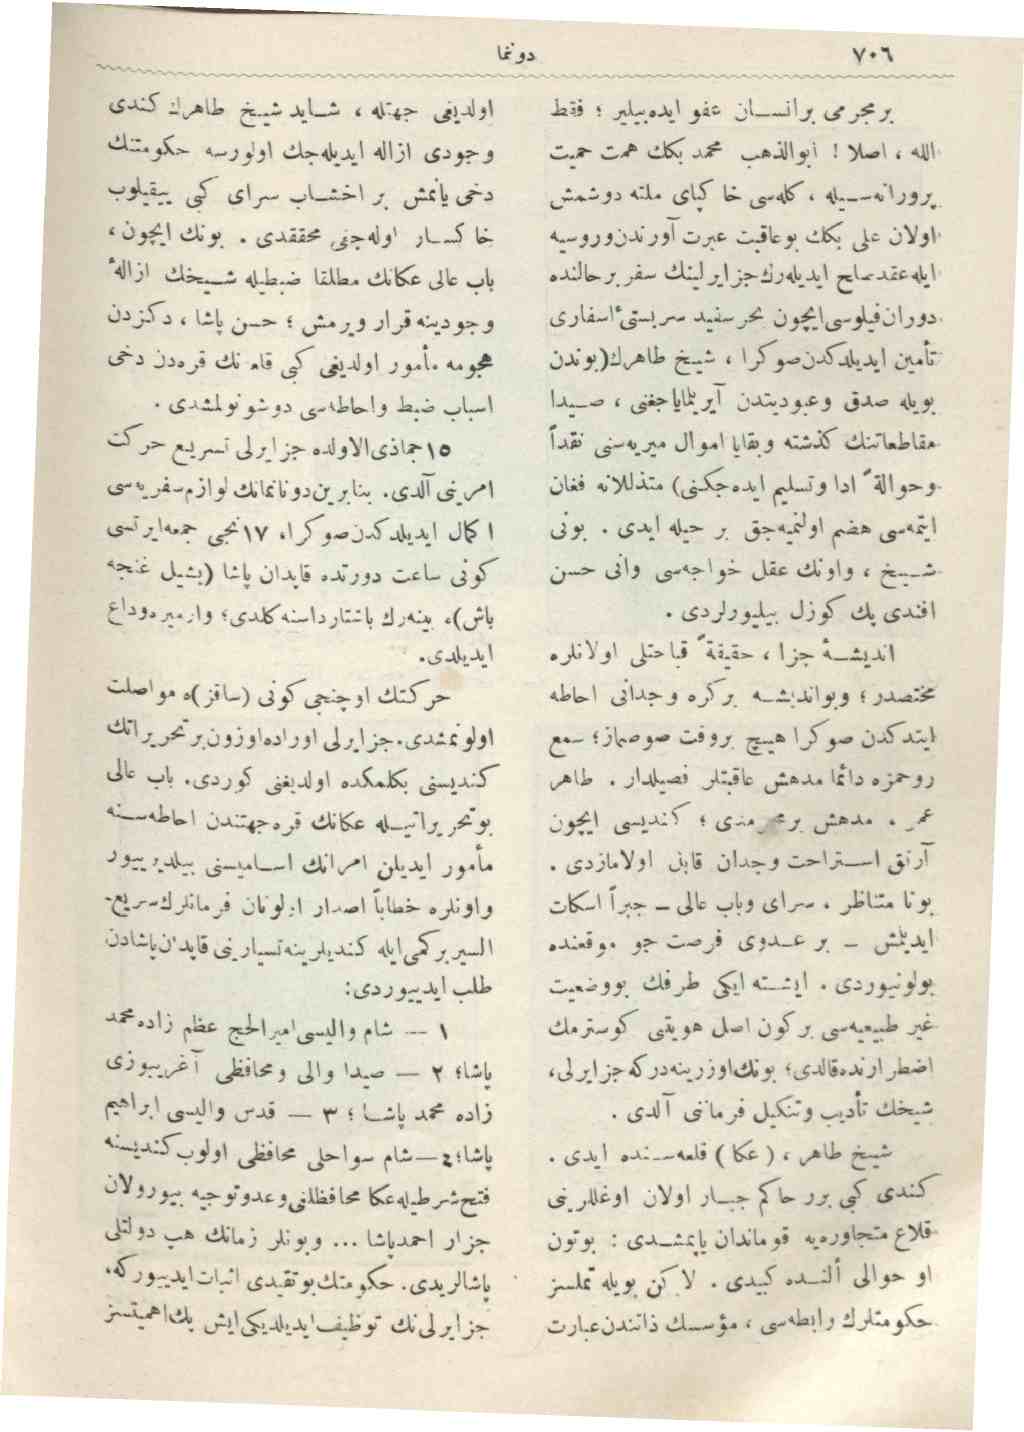 ٧٠٦
دونما
بر مجرمی بر انسـان عفو ایده‌بیلیر ؛ فقط
الله ، اصلا ! ابوالذهب محمد بكك همت حمیت
پرورانه‌سـیله ، كله‌سی خا كپای ملته دوشمش
اولان علی بكك بوعاقبت عبرت آورندن‌وروسیه
ایله عقد صلح ایدیله‌رك جزایرلینك سفر بر حالنده
دوران فیلوسی ایچون بحر سفید سربستیٔ اسفاری
تأمین ایدیلدكدن صوكرا ، شیخ طاهرك (بوندن
بویله صدق وعبودیتدن آیریلمایاجغنی ، صـیدا
مقاطعاتنك كذشته وبقایا اموال میریه‌سنی نقداً
وحوالةً ادا وتسلیم ایده‌جكنی) متذللانه فغان
ایتمه‌سی هضم اولنمیه‌جق بر حیله ایدی . بونی
شـیخ ، واونك عقل خواجه‌سی وانی حسن
افندی پك كوزل بیلیورلردی .
اندیشـۀ جزا ، حقیقةً قباحتلی اولانلره
مختصدر ؛ وبواندیشـه بركره وجدانی احاطه
ایتدكدن صوكرا هیچ بروقت صوصماز؛ سمع
روحمزه دائما مدهش عاقبتلر فصیلدار . طاهر
عمر ، مدهش بر مجرمدی ؛ كندیسی ایچون
آرتق اسـتراحت وجدان قابل اولامازدی .
بوكا متناظر ، سرای وباب عالی ــ جبراً اسكات
ایدیلمش ــ بر عـدوی فرصت جو موقعنده
بولونیوردی . ایشـته ایكی طرفك بووضعیت
غیر طبیعیه‌سی بركون اصل هویتی كوسترمك
اضطرارنده قالدی؛ بونك‌اوزرینه‌دركه جزایرلی،
شیخك تأدیب وتنكیل فرماننی آلدی .
شیخ طاهر ، ( عكا ) قلعه‌سـنده ایدی .
كندی كبی برر حاكم جبـار اولان اوغللرینی
قلاع متجاوره‌یه قوماندان یاپمشـدی : بوتون
او حوالی ألنـده كبیدی . لا كن بویله تملسز
حكومتلرك رابطه‌سی ، مؤسسك ذاتندن عبارت
اولدیغی جهتله ، شـاید شیـخ طاهرك كندی
وجودی ازاله ایدیله‌جك اولورسه حكومتنك
دخی یانمش بر اخشـاب سرای كبی ییقیلوب
خا كسـار اوله‌جغی محققدی . بونك ایچون ،
باب عالی عكانك مطلقا ضبطیله شـیخك ازالۀ
وجودینه قرار ویرمش ؛ حسن پاشا ، دكزدن
هجومه مأمور اولدیغی كبی قلعه نك قره‌دن دخی
اسباب ضبط واحاطه‌سی دوشونولمشدی .
١٥ جماذی‌الاولده جزایرلی تسریـع حركت
امرینی آلدی. بنابرین دونانمانك لوازم سفریه‌سی
اكمال ایدیلدكدن صوكرا، ١٧ نجی جمعه‌ایرتسی
كونی ساعت دورتده قاپدان پاشا (یشیل غنجه
باش)، بینه‌رك باشتارداسنه كلدی؛ وارمیره‌وداع
ایدیلدی.
حركتك اوچنجی كونی (ساقز)ه مواصلت
اولونمشدی. جزایرلی اوراده اوزون بر تحریراتك
كندیسنی بكلمكده اولدیغنی كوردی. باب عالی
بوتحریراتیـله عكانك قره‌جهتندن احاطه‌سـنه
مأمور ایدیلن امرانك اسـامیسنی بیلدیرییور
واونلره خطاباً اصدار اولونان فرمانلرك سریع-
السیر بر كمی ایله كندیلرینه تسیارینی قاپدان پاشادن
طلب ایدییوردی:
١ — شام والیسی امیرالحج عظم زاده محمد
پاشا؛ ٢ — صیدا والی ومحافظی آغریبوزی
زاده محمد پاشـا ؛ ٣ — قدس والیسی ابراهیم
پاشا؛ ٤—شام سواحلی محافظی اولوب كندیسنه
فتح شرطیله عكا محافظلغی وعد وتوجیه بیورولان
جزار احمد پاشا ... وبونلر زمانك هپ دولتلی
پاشالریدی. حكومتك بوتقیدی اثبات ایدییوركه،
جزایرلی نك توظیف ایدیلدیكی ایش پك اهمیتسز